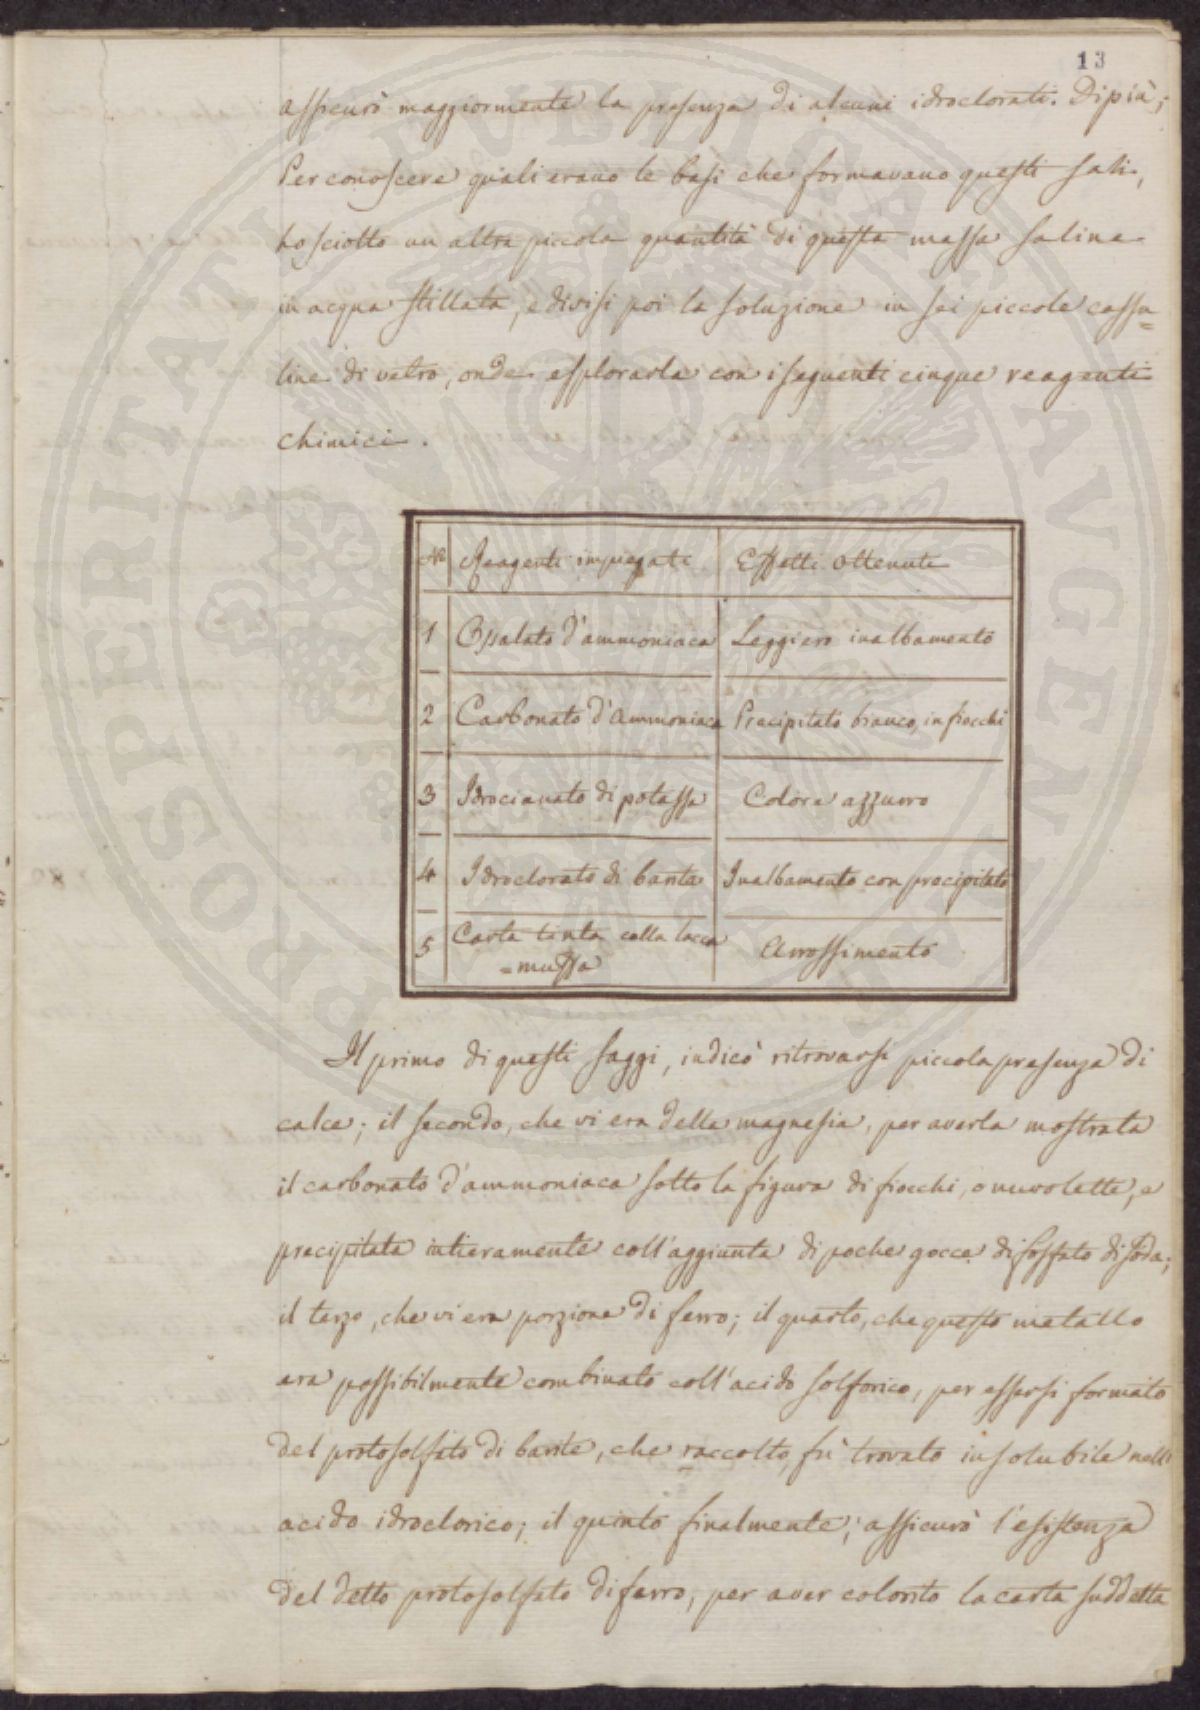 13
assicurò maggiormente la presenza di alcuni idroclorati. Di più;
Per conoscere quali erano le basi che formavano questi sali,
ho sciolto un altra piccola quantità di questa massa salina
in acqua stillata, e divisi poi la soluzione in sei piccole cassu=
line di vetro, onde esplorarla con i seguenti cinque reagenti
chimici.
N Reagenti impiegati Effetti ottenuti
1 Ossalato d'ammoniaca Leggiero inalbamento
2 Carbonato d'ammoniaca Precipitato bianco, in fiocchi
3 Idrocianato di potassa Colore azzurro
4 Idroclorato di barite Inalbamento con precipitato
5 Carta tinta colla lacca Arrossimento
=muffa
Il primo di questi saggi, indicò ritrovarsi piccola presenza di
calce; il secondo, che vi era della magnesia, per averla mostrata
il carbonato d'ammoniaca sotto la figura di fiocchi, o nuvolette, e
precipitata intieramente coll'aggiunta di poche gocce di fosfato di soda;
il terzo, che vi era porzione di ferro; il quarto, che questo metallo
era possibilmente combinato coll'acido solforico, per essersi formato
del protosolfato di barite, che raccolto, fù trovato insolubile nell'
acido idroclorico; il quinto finalmente; assicurò l'esistenza
del detto protosolfato di ferro, per aver colorito la carta suddetta
PROSPERITATI PVBLICAE AVGENDAE